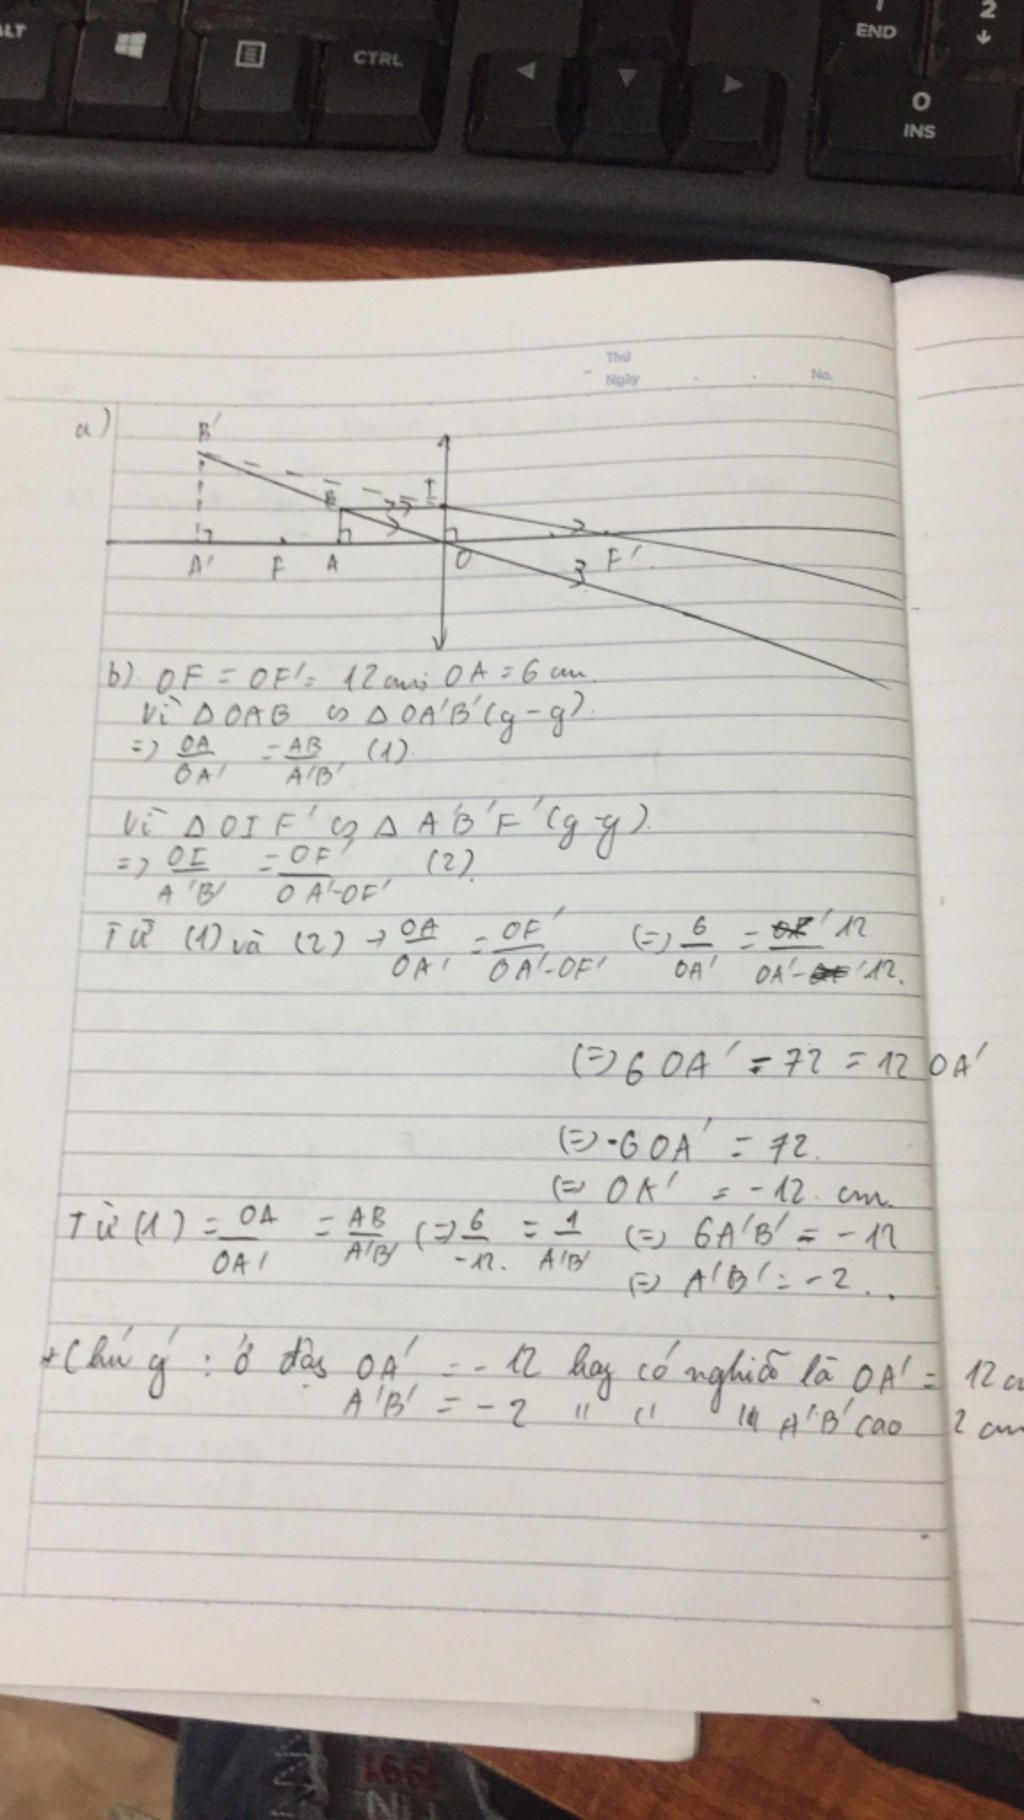 ALT
CTRL
END
2
0
INS
Thứ
Ngày
No.
a)
B'
B
I
A'
F
A
O
F'
b). OF = OF' = 12 cm; OA = 6 cm.
Vì Δ OAB ∽ Δ OA'B' (g-g).
=> OA/OA' = AB/A'B' (1).
Vì Δ OIF' ∽ Δ A'B'F' (g-g).
=> OI/A'B' = OF'/OA'-OF' (2).
Từ (1) và (2) → OA/OA' = OF'/OA'-OF' (=) 6/OA' = 12/OA'-12.
(=) 6 OA' = 72 = 12 OA'
(=) -6 OA' = 72.
(=) OA' = -12. cm.
Từ (1) = OA/OA' = AB/A'B' (=) 6/-12. = 1/A'B' (=) 6A'B' = -12
(=) A'B' = -2..
* Chú ý : ở đây OA' = -12 hay có nghĩa là OA' = 12 c
A'B' = -2 " " " A'B' cao 2 cm